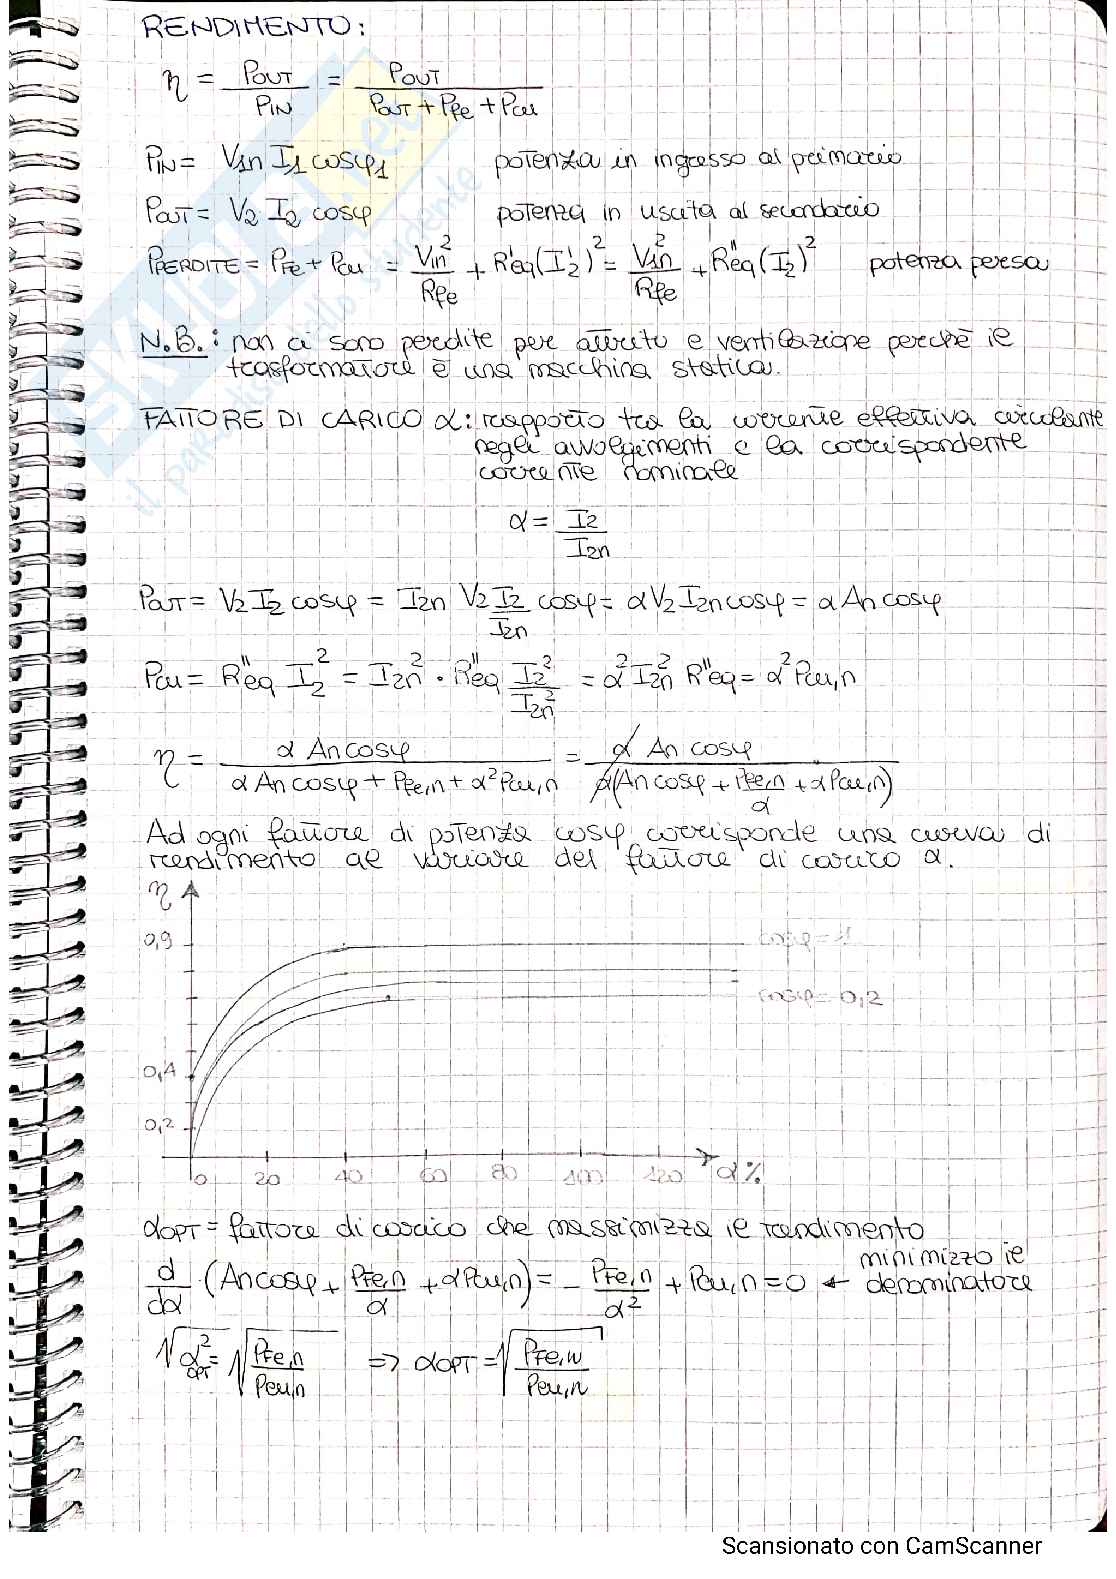 RENDIMENTO:
η = POUT / PIN = POUT / (POUT + Pfe + Pcu)
PIN = V1n I1 cosφ1 potenza in ingresso al primario
POUT = V2 I2 cosφ potenza in uscita al secondario
PPERDITE = PFe + Pcu = V1n² / Rfe + R'eq(I2')² = V1n² / Rfe + R"eq(I2)² potenza persa
N.B.: non ci sono perdite per attrito e ventilazione perchè il
trasformatore è una macchina statica.
FATTORE DI CARICO α: rapporto tra la corrente effettiva circolante
negli avvolgimenti e la corrispondente
corrente nominale
α = I2 / I2n
POUT = V2 I2 cosφ = I2n V2 I2 / I2n cosφ = α V2 I2n cosφ = α An cosφ
Pcu = R"eq I2² = I2n² · R"eq I2² / I2n² = α² I2n² R"eq = α² Pcu,n
η = α An cosφ / (α An cosφ + Pfe,n + α² Pcu,n) = α An cosφ / α(An cosφ + Pfe,n / α + α Pcu,n)
Ad ogni fattore di potenza cosφ corrisponde una curva di
rendimento al variare del fattore di carico α.
η
0,9
cosφ = 1
cosφ = 0,2
0,4
0,2
0 20 40 60 80 100 120 α%
αOPT = fattore di carico che massimizza il rendimento
d / dα (An cosφ + Pfe,n / α + α Pcu,n) = - Pfe,n / α² + Pcu,n = 0 ← minimizzo il
denominatore
√α²OPT = √(Pfe,n / Pcu,n) => αOPT = √(Pfe,n / Pcu,n)
SKUOLA.net
il paradiso dello studente
Scansionato con CamScanner